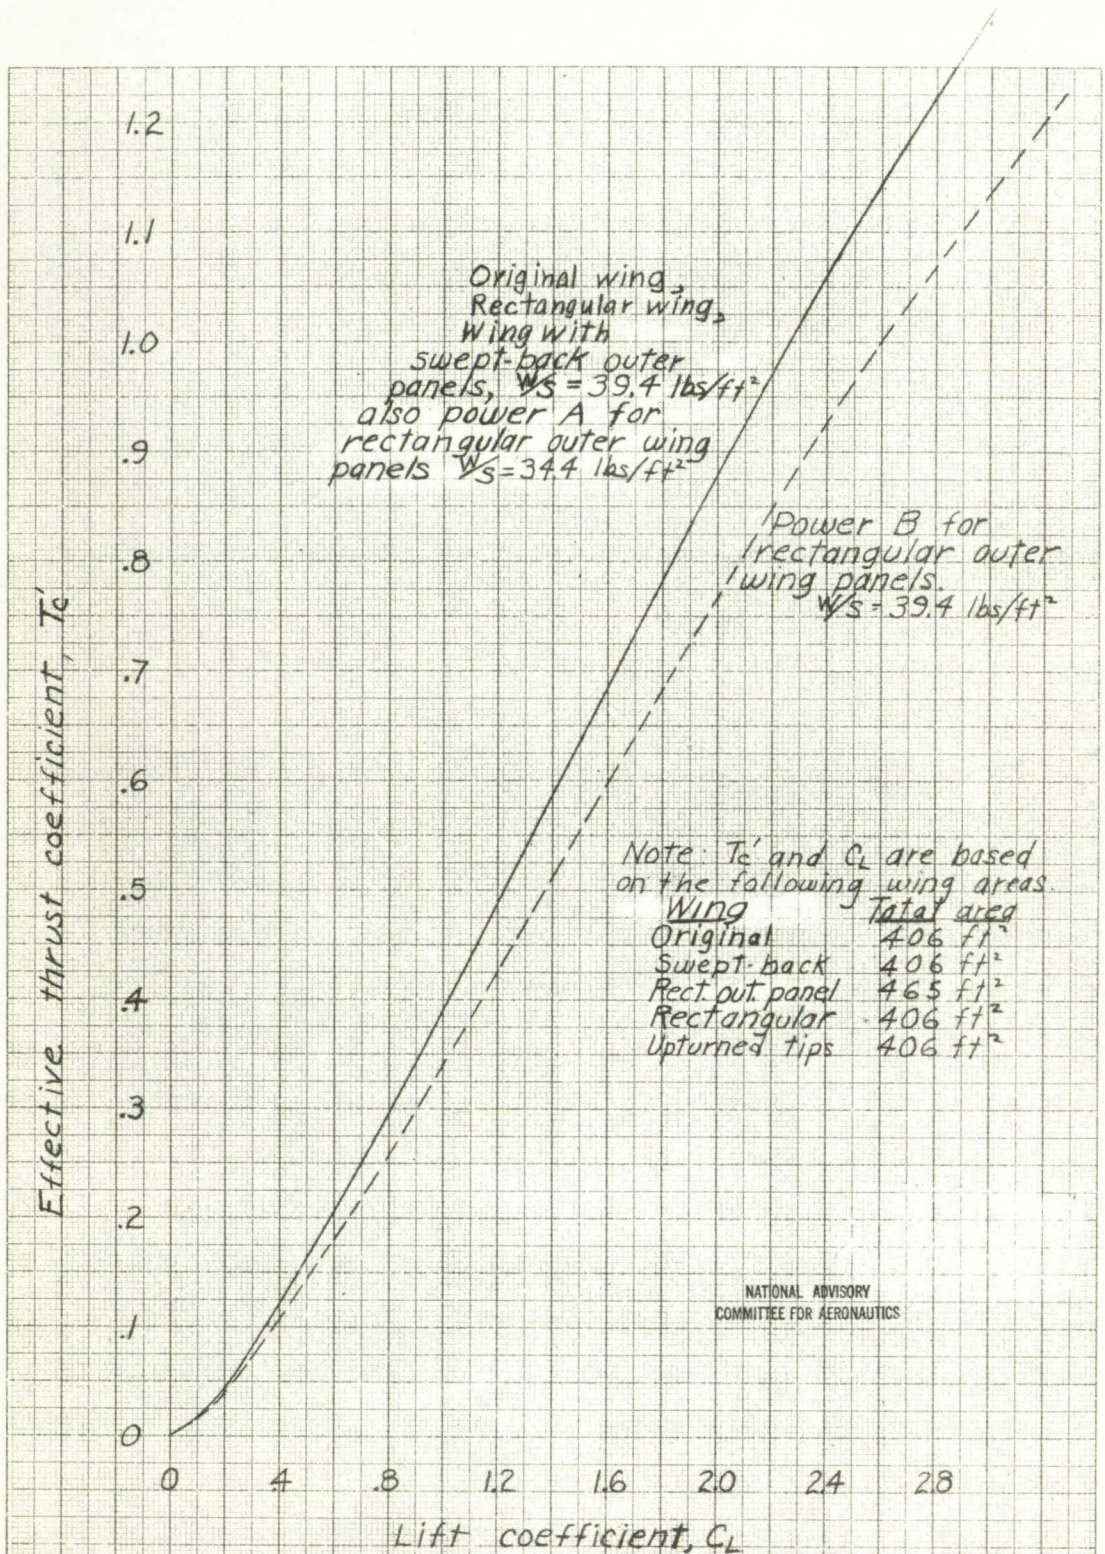 1.2
1.1
1.0
.9
.8
.7
.6
.5
.4
.3
.2
.1
0
Effective thrust coefficient, Tc'
Original wing,
Rectangular wing,
Wing with
swept-back outer
panels, W/S = 39.4 lbs/ft²
also power A for
rectangular outer wing
panels W/S = 34.4 lbs/ft²
Power B for
rectangular outer
wing panels.
W/S = 39.4 lbs/ft²
Note: Tc' and CL are based
on the following wing areas.
Wing Total area
Original 406 ft²
Swept-back 406 ft²
Rect. out. panel 465 ft²
Rectangular 406 ft²
Upturned tips 406 ft²
NATIONAL ADVISORY
COMMITTEE FOR AERONAUTICS
0 .4 .8 1.2 1.6 2.0 2.4 2.8
Lift coefficient, CL